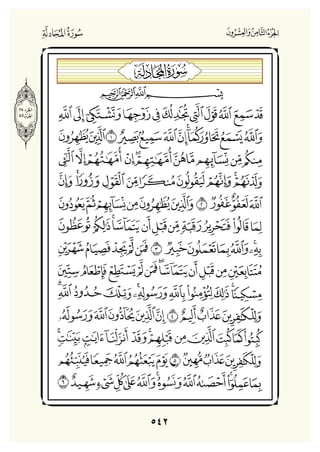 الجزء الثامن والعشرون
سورة المجادلة
سُورَةُ المُجَادِلَةِ
بِسْمِ اللَّهِ الرَّحْمَٰنِ الرَّحِيمِ
قَدْ سَمِعَ اللَّهُ قَوْلَ الَّتِي تُجَادِلُكَ فِي زَوْجِهَا وَتَشْتَكِي إِلَى اللَّهِ
وَاللَّهُ يَسْمَعُ تَحَاوُرَكُمَا إِنَّ اللَّهَ سَمِيعٌ بَصِيرٌ ١ الَّذِينَ يُظَاهِرُونَ
مِنكُم مِّن نِّسَائِهِم مَّا هُنَّ أُمَّهَاتِهِمْ إِنْ أُمَّهَاتُهُمْ إِلَّا الَّتِي
وَلَدْنَهُمْ وَإِنَّهُمْ لَيَقُولُونَ مُنكَرًا مِّنَ الْقَوْلِ وَزُورًا وَإِنَّ
اللَّهَ لَعَفُوٌّ غَفُورٌ ٢ وَالَّذِينَ يُظَاهِرُونَ مِن نِّسَائِهِمْ ثُمَّ يَعُودُونَ
لِمَا قَالُوا فَتَحْرِيرُ رَقَبَةٍ مِّن قَبْلِ أَن يَتَمَاسَّا ذَٰلِكُمْ تُوعَظُونَ
بِهِ وَاللَّهُ بِمَا تَعْمَلُونَ خَبِيرٌ ٣ فَمَن لَّمْ يَجِدْ فَصِيَامُ شَهْرَيْنِ
مُتَتَابِعَيْنِ مِن قَبْلِ أَن يَتَمَاسَّا فَمَن لَّمْ يَسْتَطِعْ فَإِطْعَامُ سِتِّينَ
مِسْكِينًا ذَٰلِكَ لِتُؤْمِنُوا بِاللَّهِ وَرَسُولِهِ وَتِلْكَ حُدُودُ اللَّهِ
وَلِلْكَافِرِينَ عَذَابٌ أَلِيمٌ ٤ إِنَّ الَّذِينَ يُحَادُّونَ اللَّهَ وَرَسُولَهُ
كُبِتُوا كَمَا كُبِتَ الَّذِينَ مِن قَبْلِهِمْ وَقَدْ أَنزَلْنَا آيَاتٍ بَيِّنَاتٍ
وَلِلْكَافِرِينَ عَذَابٌ مُّهِينٌ ٥ يَوْمَ يَبْعَثُهُمُ اللَّهُ جَمِيعًا فَيُنَبِّئُهُم
بِمَا عَمِلُوا أَحْصَاهُ اللَّهُ وَنَسُوهُ وَاللَّهُ عَلَىٰ كُلِّ شَيْءٍ شَهِيدٌ ٦
٥٤٢